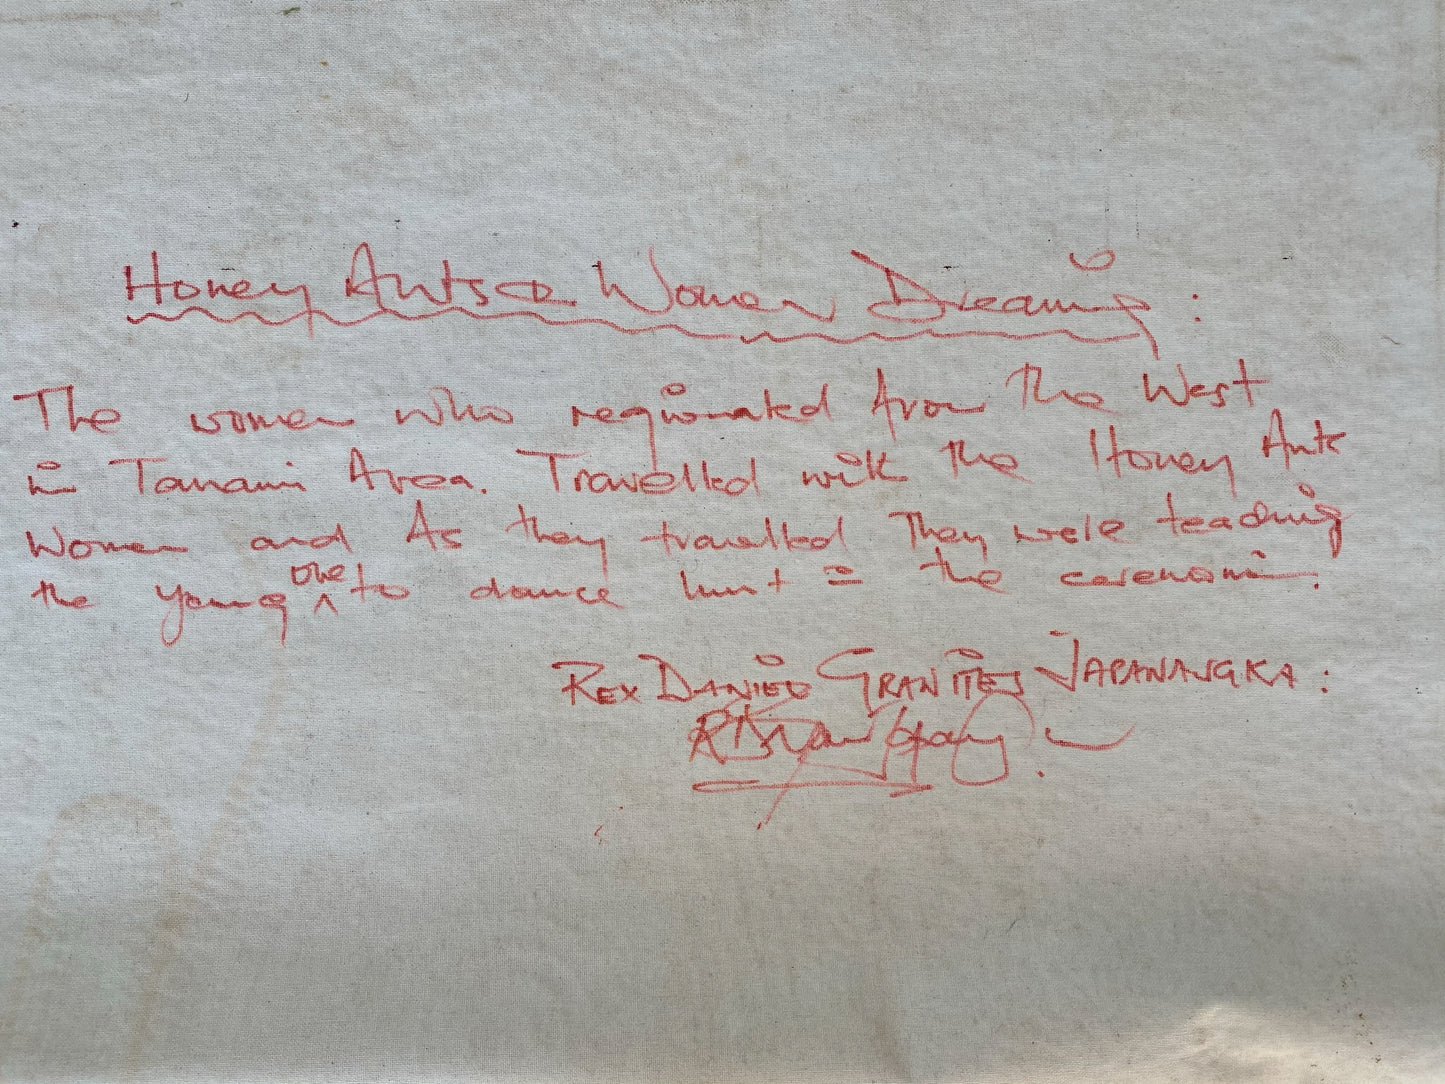 Honey Ants Women Dreaming :
The women who regionated from The West
in Tanami Area. Travelled with the Honey Ants
Women and As they travelled They were teaching
one
the young ^ to dance hunt = the ceremoni.
REX DANIEL GRANITES JAPANANGKA :